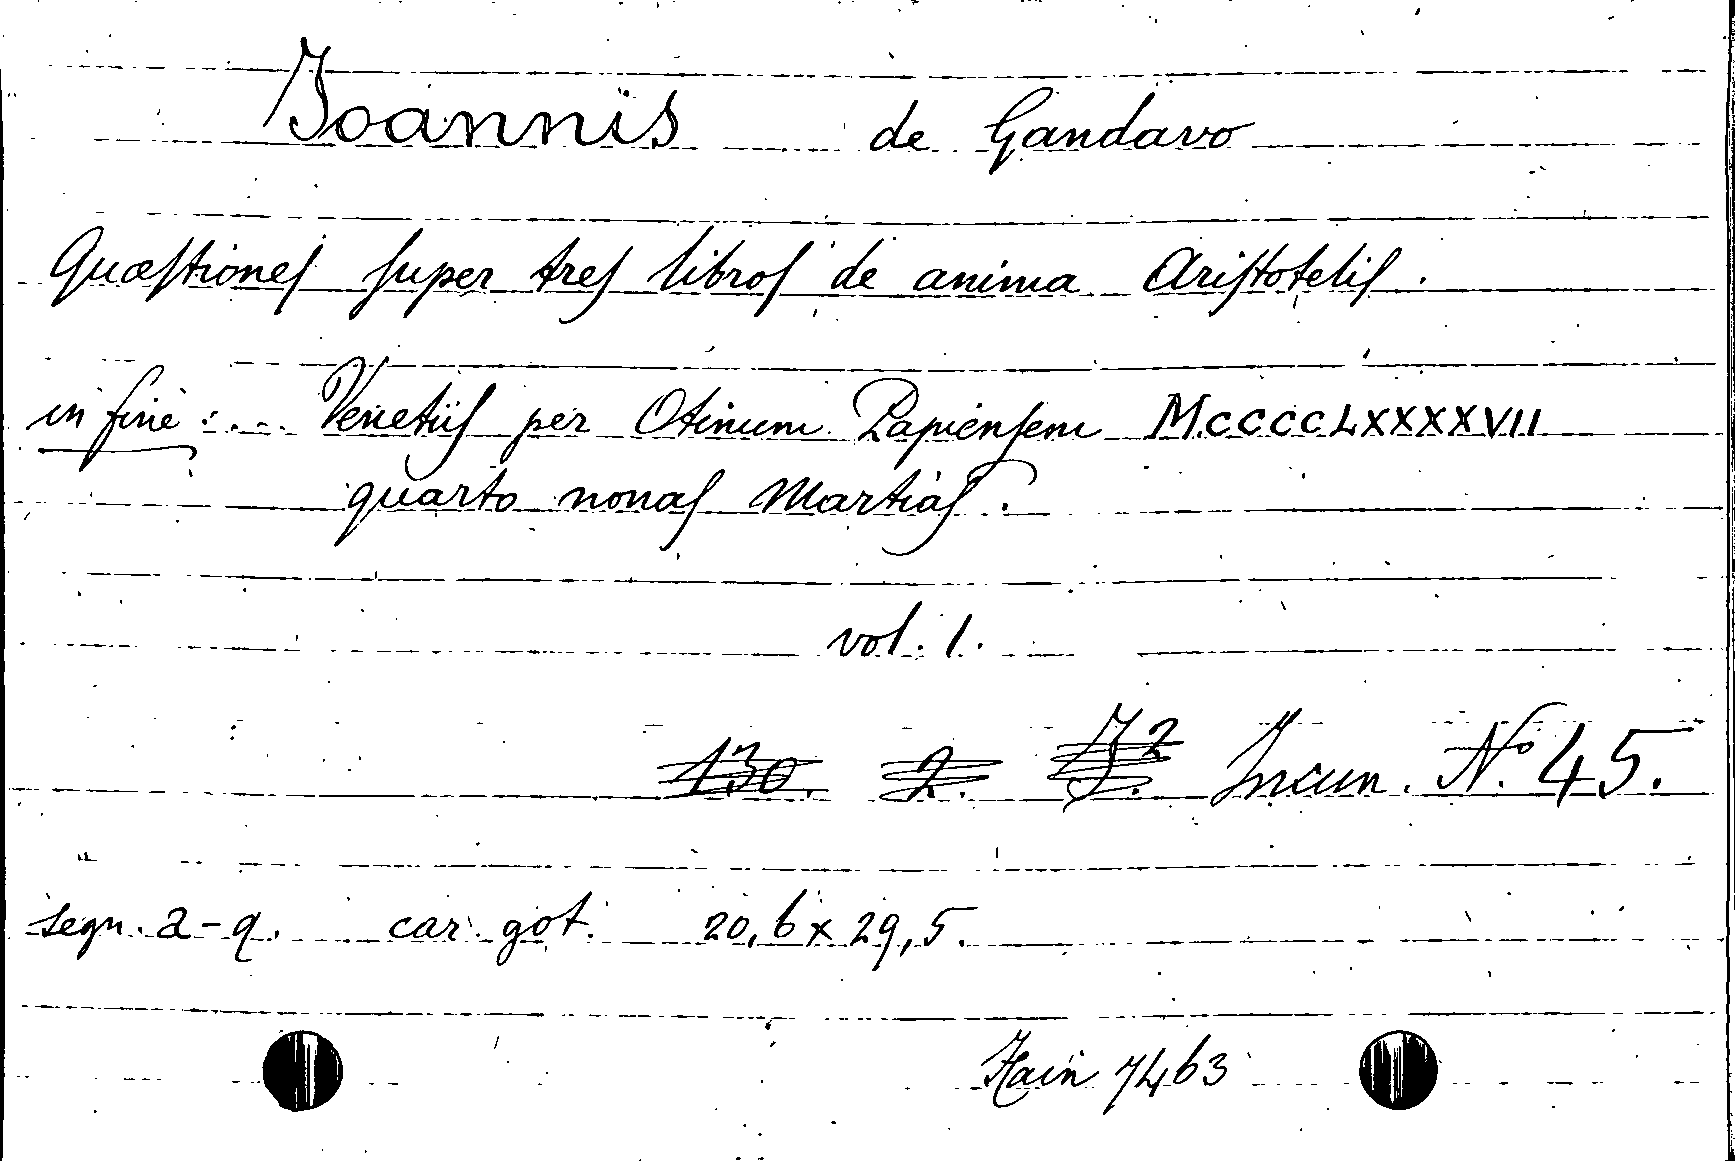 Joannis de Gandavo
Quæſtioneſ ſuper treſ libroſ de anima Ariſtoteliſ.
in fine: ... Venetiiſ per Otinum Papienſem MCCCCLXXXXVII
quarto nonaſ Martiaſ.
vol. 1.
130. 2. J.² Incun. Nº. 45.
segn. a-q. car. got. 20,6 x 29,5.
Hain 7463